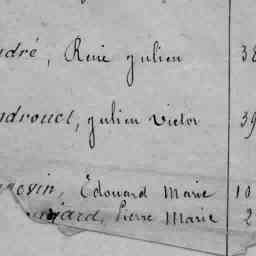 ndré, René julien 38
ndrouet, julien Victor 39
nevin, Édouard Marie 10
jard, Pierre Marie 2